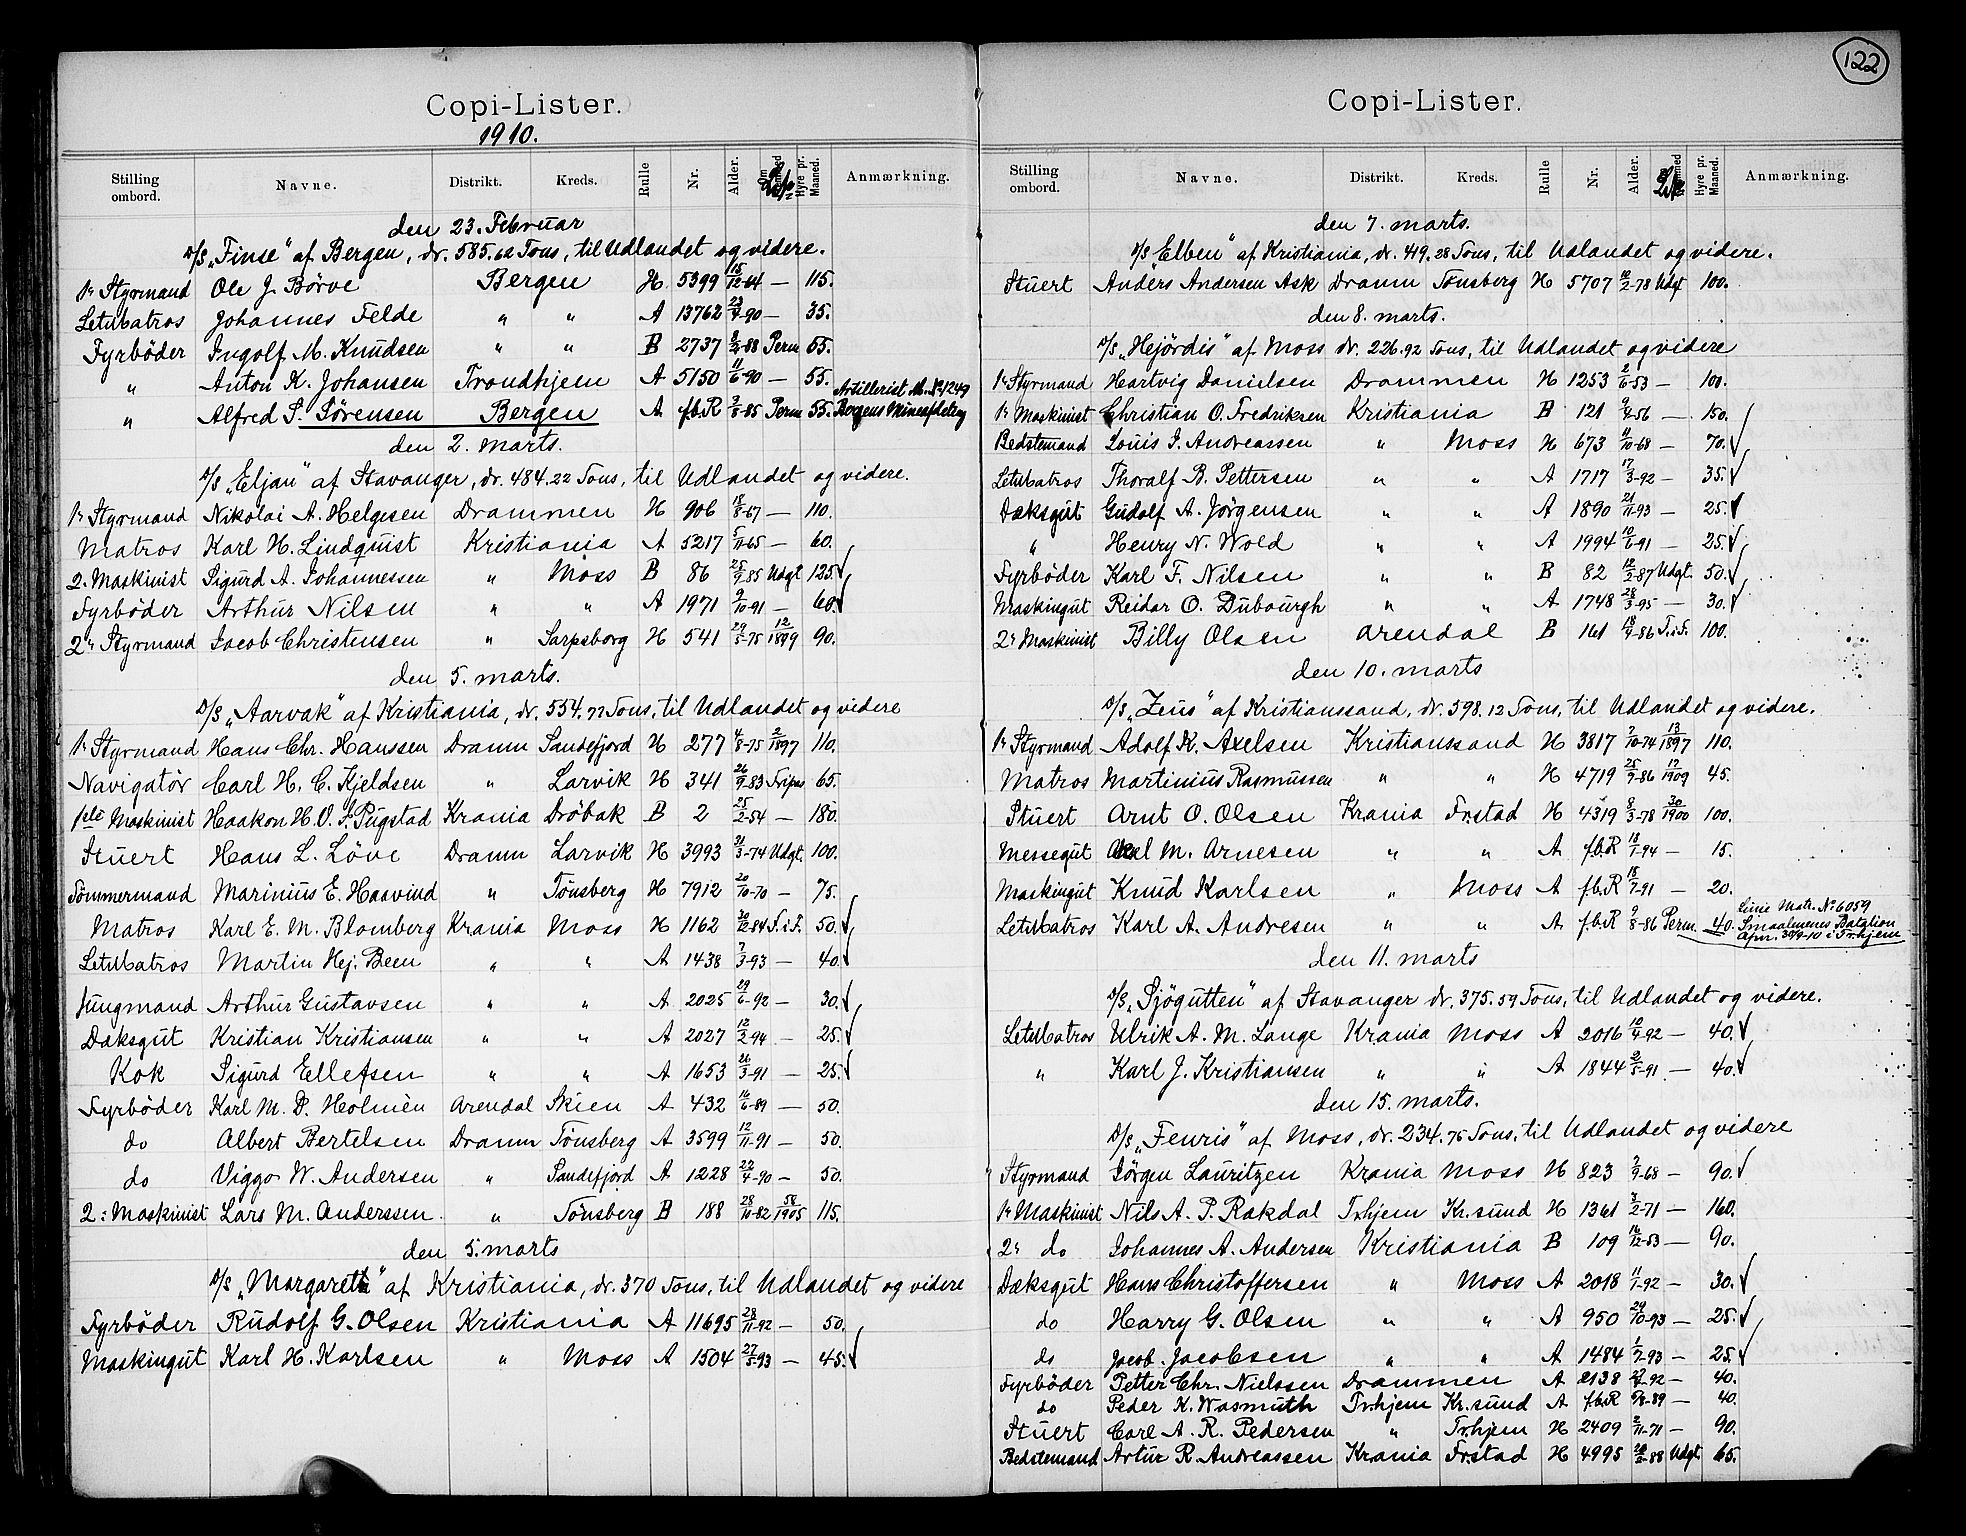 Copi-Lister.
1910.
Stilling ombord. Navne. Distrikt. Kreds. Rulle Nr. Alder. Hyre pr. Maaned. Anmærkning.
den 23. Februar
D/S „Finse" af Bergen, dr. 585.62 Tons, til Udlandet og videre.
1ste Styrmand Ole J. Börve Bergen H 5399 15/12-64 — 115.
Letmatros Johannes Felde " " A 13762 23/9-90 — 35.
Fyrböder Ingolf M. Knudsen " " B 2737 8/2-88 Perm 55.
" Anton K. Johansen Trondhjem A 5150 11/6-90 — 55.
" Alfred S. Sörensen Bergen A f.b.R 3/8-85 Perm 55. Artillerist M. No 1249 Bergens Mineafdeling
den 2. marts.
D/S „Eljan" af Stavanger, dr. 484.22 Tons, til Udlandet og videre.
1r Styrmand Nikolai A. Helgesen Drammen H 906 18/8-67 — 110.
Matros Karl H. Lindquist Kristiania A 5217 5/11-65 — 60.
2. Maskinist Sigurd A. Johannessen " Moss B 86 25/9-85 Udgt. 125.
Fyrböder Arthur Nilsen " " A 1971 9/10-91 — 60.
2n Styrmand Jacob Christensen " Sarpsborg H 541 29/5-75 12/1899 90.
den 5. marts.
D/S „Aarvak" af Kristiania, dr. 554.72 Tons, til Udlandet og videre
1r Styrmand Hans Chr. Hanssen Dramn Sandefjord H 277 4/8-75 2/1897 110.
Navigatör Carl H. C. Kjeldsen " Larvik H 341 26/9-83 65.
1ste Maskinist Haakon H. O. S. Pugstad Krania Dröbak B 2 25/2-54 — 180.
Stuert Hans L. Löve Dramn Larvik H 3993 21/3-74 Udgt. 100.
Tömmermand Marinius E. Haavind " Tönsberg H 7912 20/10-70 — 75.
Matros Karl E. M. Blomberg Krania Moss H 1162 30/12-84 F.i.F. 50.
Letmatros Martin Hej. Been " " A 1438 7/3-93 — 40.
Jungmand Arthur Gustavsen " " A 2025 29/6-92 — 30.
Dæksgut Kristian Kristiansen " " A 2027 12/2-94 — 25.
Kok Sigurd Ellefsen " " A 1653 26/3-91 — 25.
Fyrböder Karl M. D. Holmèn Arendal Skien A 432 16/6-89 — 50.
do Albert Bertelsen Dramn Tönsberg A 3599 12/11-91 — 50.
do Viggo W. Andersen " Sandefjord A 1228 22/4-90 — 50.
2: Maskinist Lars M. Anderssen. " Tönsberg B 188 28/10-82 58/1905 115.
den 5. marts
D/S „Margareth" af Kristiania, dr. 370 Tons, til Udlandet og videre
Fyrböder Rudolf G. Olsen Kristiania A 11695 28/11-92 — 50.
Maskingut Karl H. Karlsen " Moss A 1504 27/5-93 — 45.
122
Copi-Lister.
Stilling ombord. Navne. Distrikt. Kreds. Rulle Nr. Alder. Hyre pr. Maaned. Anmærkning.
den 7. marts.
D/S „Elben" af Kristiania, dr. 419.28 Tons, til Udlandet og videre.
Stuert Anders Andersen Ask Dramn Tönsberg H 5707 10/2-78 Udgt 100.
den 8. marts.
D/S „Hejördis" af Moss dr. 226.92 Tons, til Udlandet og videre
1r Styrmand Hartvig Danielsen Drammen H 1253 2/6-53 — 100.
1r Maskinist Christian O. Fredriksen Kristiania B 121 9/4-56 — 150.
Bedstemand Louis J. Andreassen " Moss H 673 11/10-68 — 70.
Letmatros Thoralf B. Pettersen " " A 1717 17/3-92 — 35.
Dæksgut Gudolf A. Jörgensen " " A 1890 21/11-93 — 25.
" Henry N. Wold " " A 1994 10/6-91 — 25.
Fyrböder Karl F. Nilsen " " B 82 12/2-87 Udgt. 50.
Maskingut Reidar O. Dubourgh " " A 1748 28/3-95 — 30.
2n Maskinist Billy Olsen Arendal B 161 18/9-86 F.i.F. 100.
den 10. marts
D/S „Zeus" af Kristianssand, dr. 598.12 Tons, til Udlandet og videre.
1r Styrmand Adolf K. Axelsen Kristianssand H 3817 7/10-74 13/1897 110.
Matros Martinius Rasmussen " " H 4719 25/9-86 17/1909 45.
Stuert Arnt O. Olsen Krania Fr.stad H 4319 8/3-78 30/1900 100.
Messegut Axel M. Arnesen " " A f.b.R 18/1-94 — 15.
Maskingut Knud Karlsen " Moss A f.b.R 18/7-91 — 20.
Letmatros Karl A. Andresen " " A f.b.R 9/8-86 Perm. 40. Linie Matr. No 6059 Smaalenenes Batalion Afm. 30/9-10 i Tr.hjem
den 11. marts
D/S „Sjögutten" af Stavanger dr. 375.59 Tons, til Udlandet og videre.
Letmatros Ulrik A. M. Lange Krania Moss A 2016 10/4-92 — 40.
" Karl J. Kristiansen " " A 1844 2/5-91 — 40.
den 15. marts.
D/S „Fenris" af Moss, dr. 234.75 Tons, til Udlandet og videre
Styrmand Jörgen Lauritzen Krania Moss H 823 7/9-68 — 90.
1r Maskinist Nils A. P. Rakdal Tr.hjem Kr.sund H 1361 3/2-71 — 160.
2n do Johannes A. Andersen Kristiania B 109 14/12-53 — 90.
Dæksgut Hans Christoffersen " Moss A 2018 11/1-92 — 30.
do Harry G. Olsen " " A 950 29/10-93 — 25.
do Jacob. Jacobsen " " A 1484 1/7-93 — 25.
Fyrböder Petter Chr. Nielssen Drammen A 2138 -92 — 40.
do Peder K. Wasmuth Tr.hjem Kr.sund A f.b.R -89 — 40.
Stuert Carl A. R. Pedersen " Tr.hjem H 2409 2/11-71 — 90.
Bedstemand Artur R. Andreassen Krania Fr.stad H 4995 20/2-88 Udgt 65.